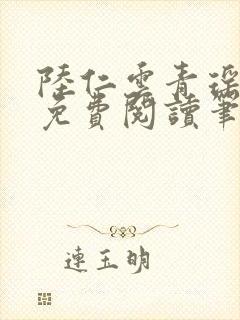 陸仁雲青瑤
免費閱讀筆
連玉明